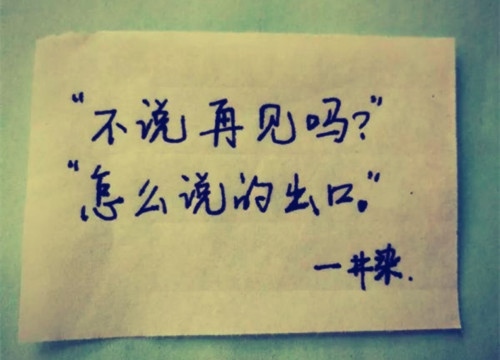 “不说再见吗?”
“怎么说的出口。”
一井染.